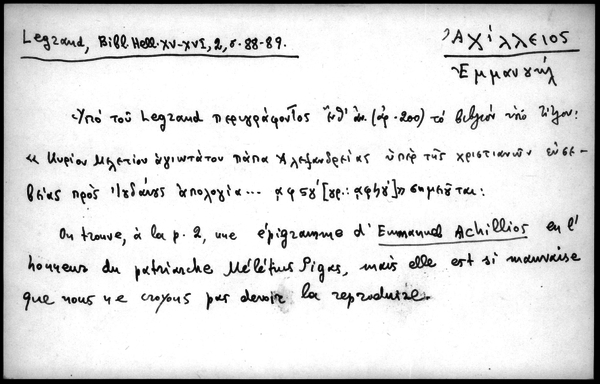 Legrand, Bibl. Hell. XV-XVI, 2, σ. 88-89.
Ἀχίλλειος
Ἐμμανουήλ
Ὑπό τοῦ Legrand περιγράφοντος (ἀρ. 200) τό βιβλίον ὑπό τίτλον:
« Κυρίου Μελετίου ἁγιωτάτου πάπα Ἀλεξανδρείας ὑπέρ τῆς χριστιανῶν εὐσε-
βείας πρός Ἰουδαίους ἀπολογία... ͵αφϟγʹ » σημειοῦται:
On trouve, à la p. 2, une épigramme d'Emmanuel Achillios en l'
honneur du patriarche Mélétius Pigas, mais elle est si mauvaise
que nous ne croyons pas devoir la reproduire.